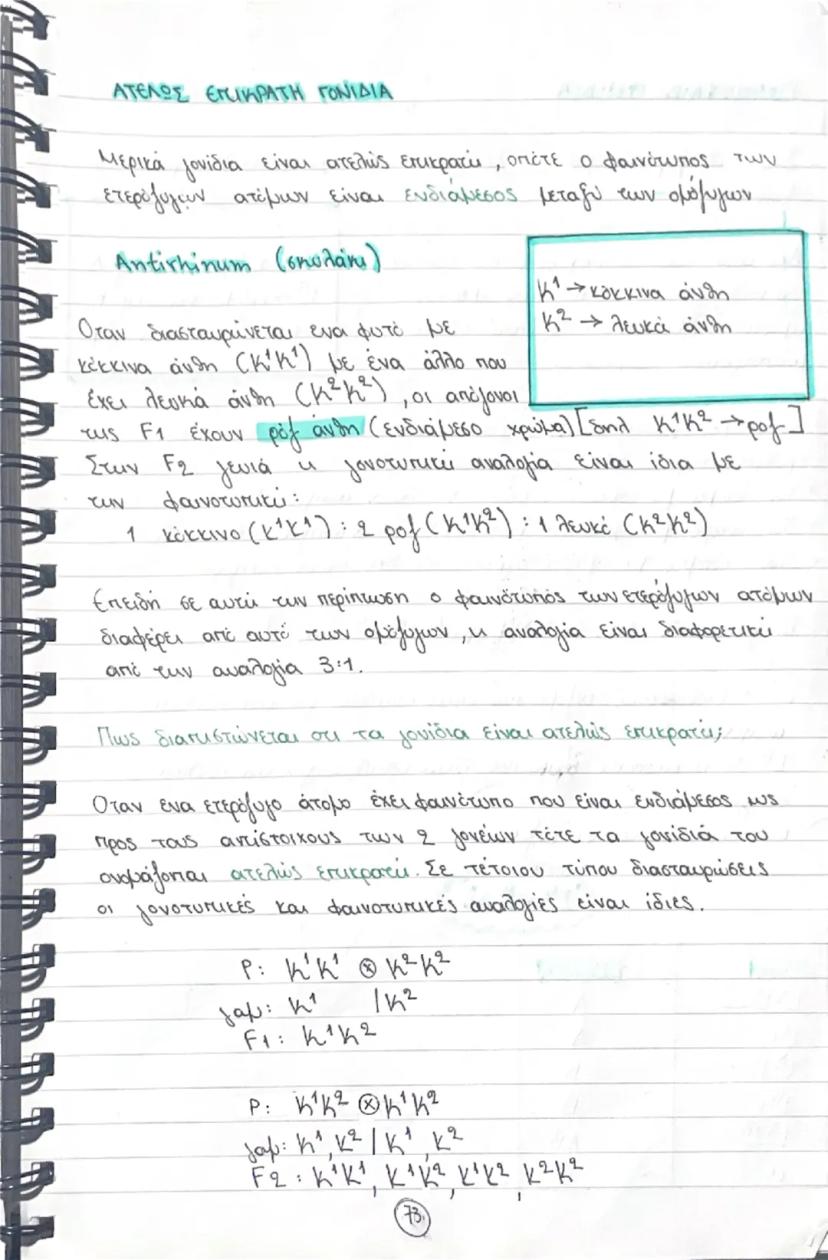 ΑΤΕΛΩΣ ΕΠΙΚΡΑΤΗ ΓΟΝΙΔΙΑ
Μερικά γονίδια είναι ατελώς επικρατή, οπότε ο φαινότυπος των
ετερόζυγων ατόμων είναι ενδιάμεσος μεταξύ των ομόζυγων
Antirrhinum (σκυλάκι)
Κ¹ → κόκκινα άνθη
Κ² → λευκά άνθη
Οταν διασταυρώνεται ενα φυτό με
κόκκινα άνθη (Κ¹Κ¹) με ένα άλλο που
έχει λευκά άνθη (Κ²Κ²), οι απόγονοι
της F1 έχουν ρόζ άνθη (ενδιάμεσο χρώμα) [δηλ Κ¹Κ² → ροζ]
Στην F2 γενιά η γονοτυπική αναλογία είναι ίδια με
την φαινοτυπική:
1 κόκκινο (Κ¹Κ¹) : 2 ροζ (Κ¹Κ²) : 1 λευκό (Κ²Κ²)
Επειδή σε αυτή την περίπτωση ο φαινότυπός των ετερόζυγων ατόμων
διαφέρει από αυτό των ομόζυγων, η αναλογία είναι διαφορετική
από την αναλογία 3:1.
Πως διαπιστώνεται οτι τα γονίδια είναι ατελώς επικρατή;
Οταν ενα ετερόζυγο άτομο έχει φαινότυπο που είναι ενδιάμεσος ως
προς τους αντίστοιχους των 2 γονέων τότε τα γονίδιά του
ονομάζονται ατελώς επικρατή. Σε τέτοιου τύπου διασταυρώσεις
οι γονοτυπικές και φαινοτυπικές αναλογίες είναι ίδιες.
P: Κ¹Κ¹ ⊗ Κ²Κ²
γαμ: Κ¹ / Κ²
F1: Κ¹Κ²
P: Κ¹Κ² ⊗ Κ¹Κ²
γαμ: Κ¹, Κ² / Κ¹, Κ²
F2: Κ¹Κ¹, Κ¹Κ², Κ¹Κ², Κ²Κ²
73.